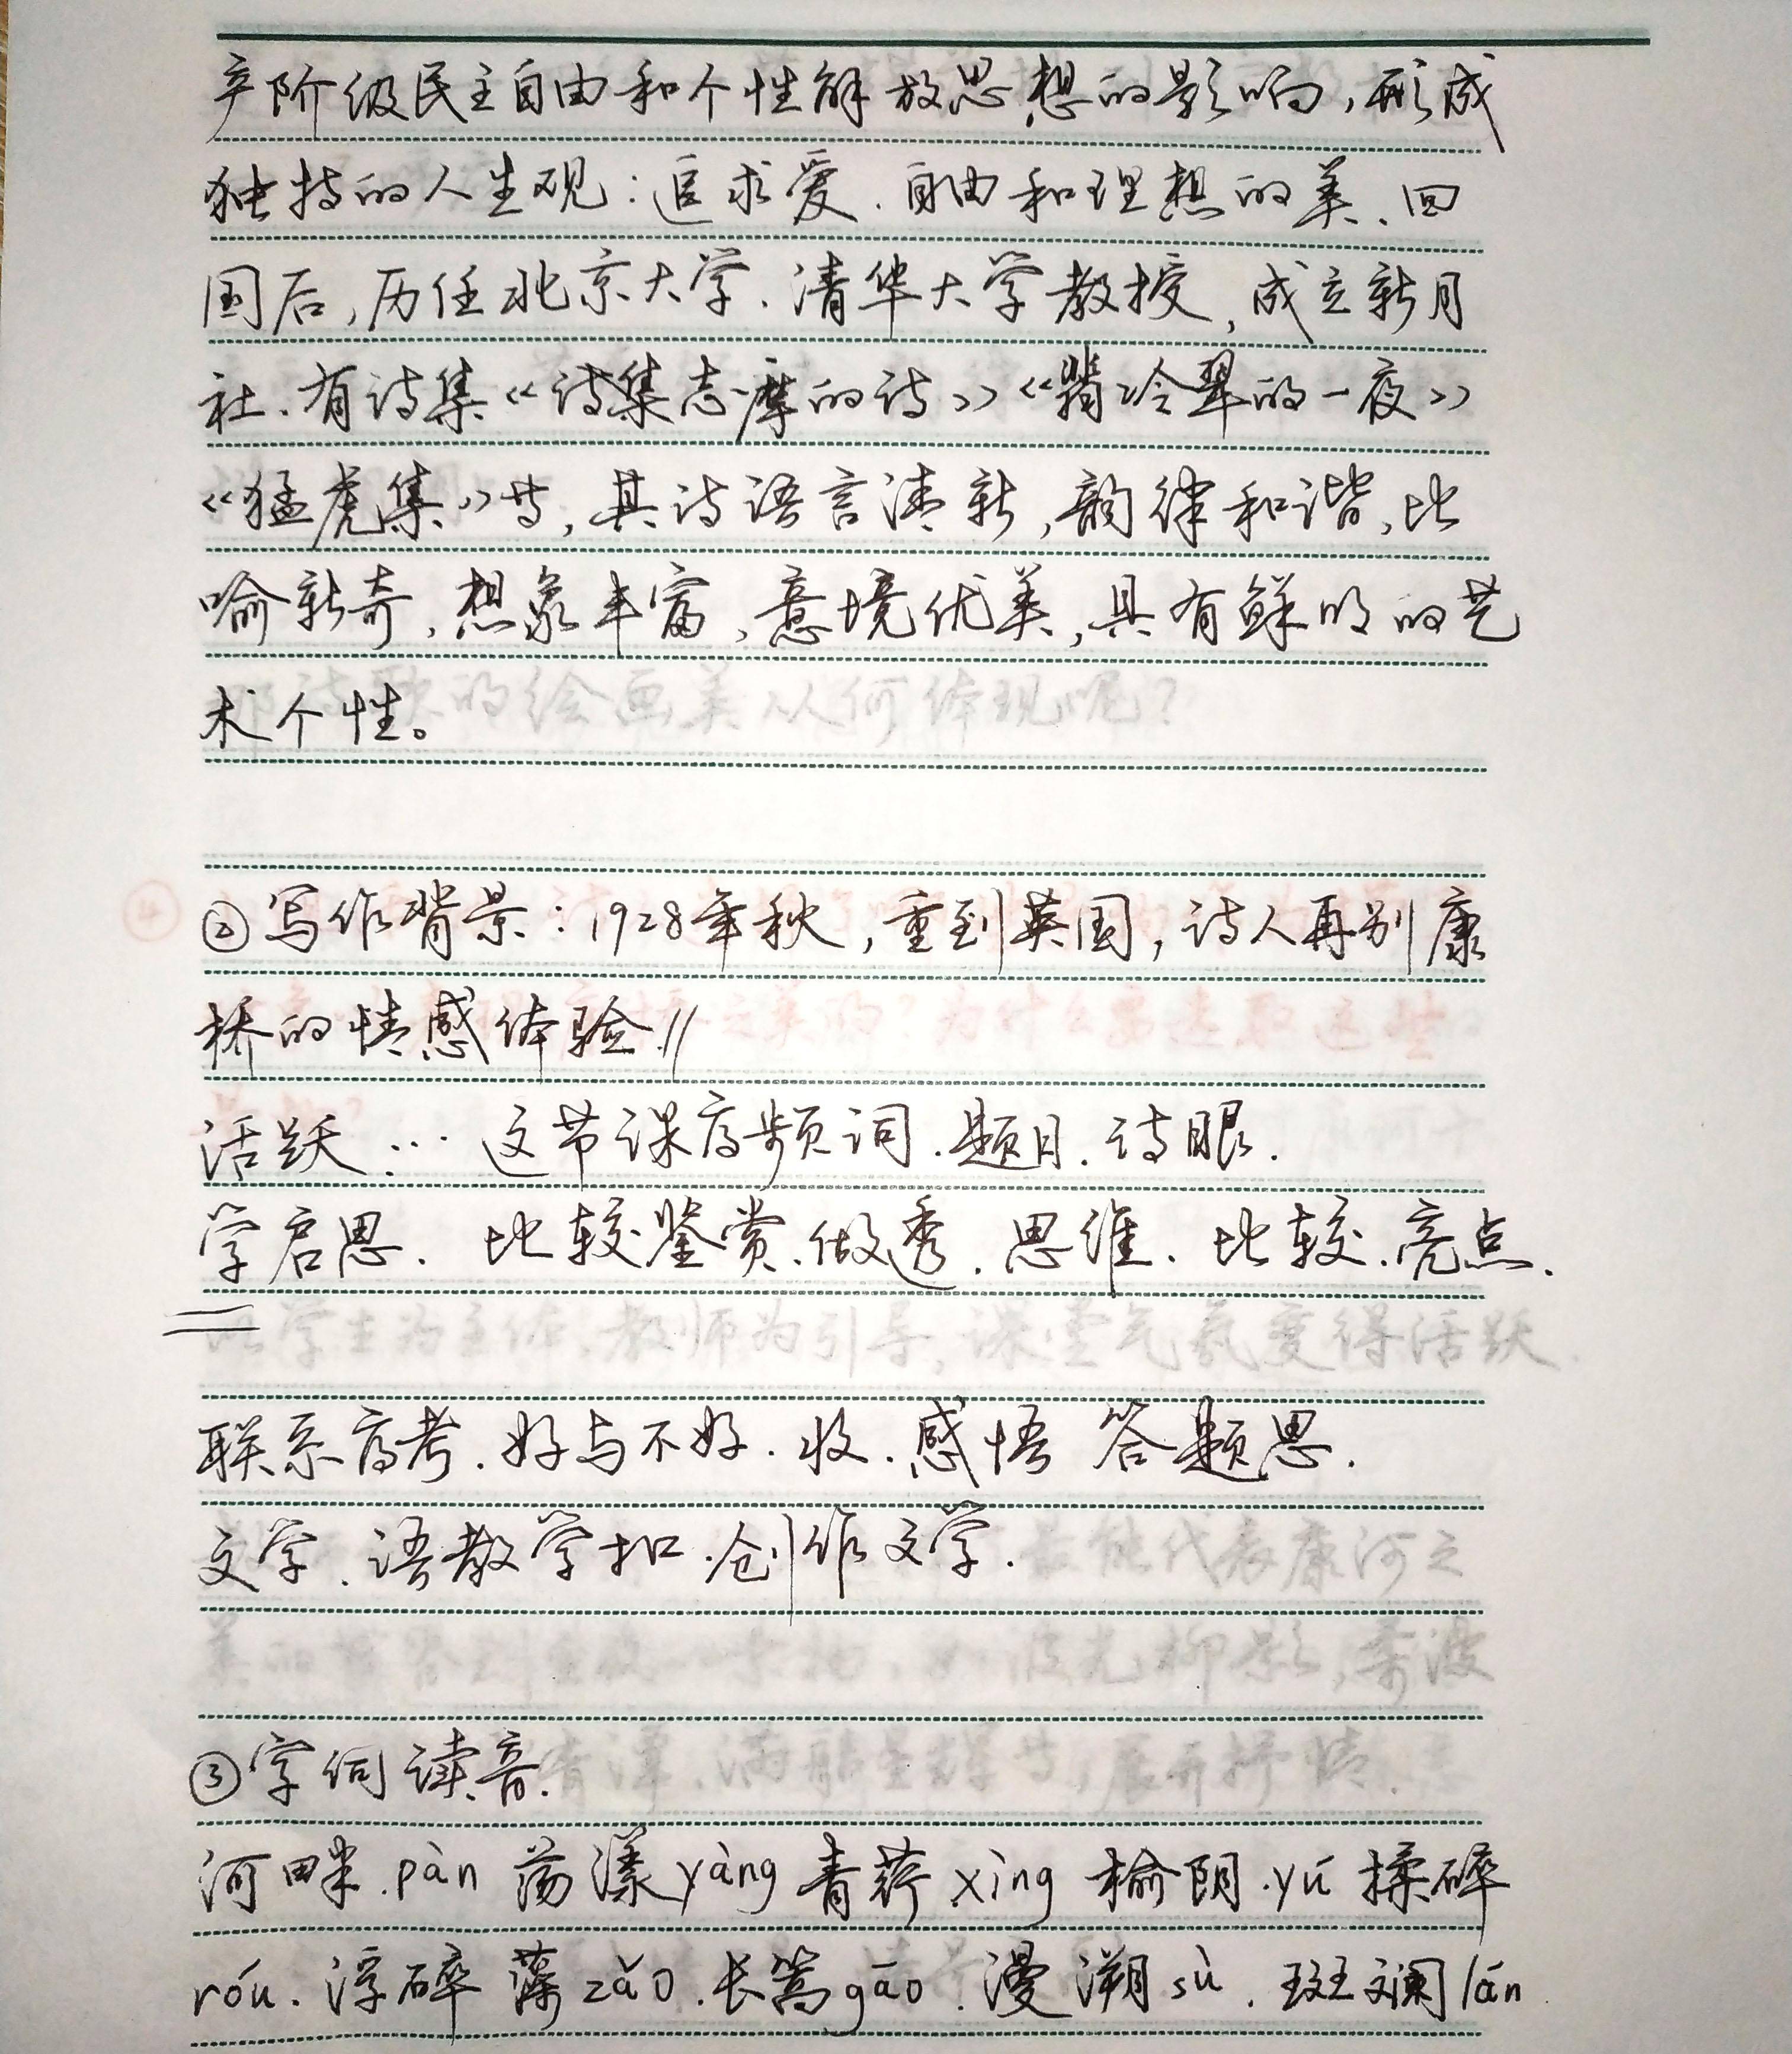 产阶级民主自由和个性解放思想的影响，形成
独特的人生观：追求爱、自由和理想的美、回
国后，历任北京大学、清华大学教授，成立新月
社、有诗集《诗集志摩的诗》《翡冷翠的一夜》
《猛虎集》等，其诗语言清新，韵律和谐，比
喻新奇，想象丰富，意境优美，具有鲜明的艺
术个性。
②写作背景：1928年秋，重到英国，诗人再别康
桥的情感体验//
活跃：… 这节课高频词.题目.诗眼.
学启思. 比较鉴赏、做透. 思维. 比较、亮点.
联系高考.好与不好.收.感悟 答题思.
文学.语教学扣.创作文学.
③字词读音.
河畔.pàn 荡漾yàng 青荇xìng 榆阴.yú 揉碎
róu. 浮碎 藻zǎo.长篙gāo.漫溯sù. 斑斓lán
那诗歌的绘画美从何体现呢？
学生为主体，教师为引导，课堂气氛变得活跃.